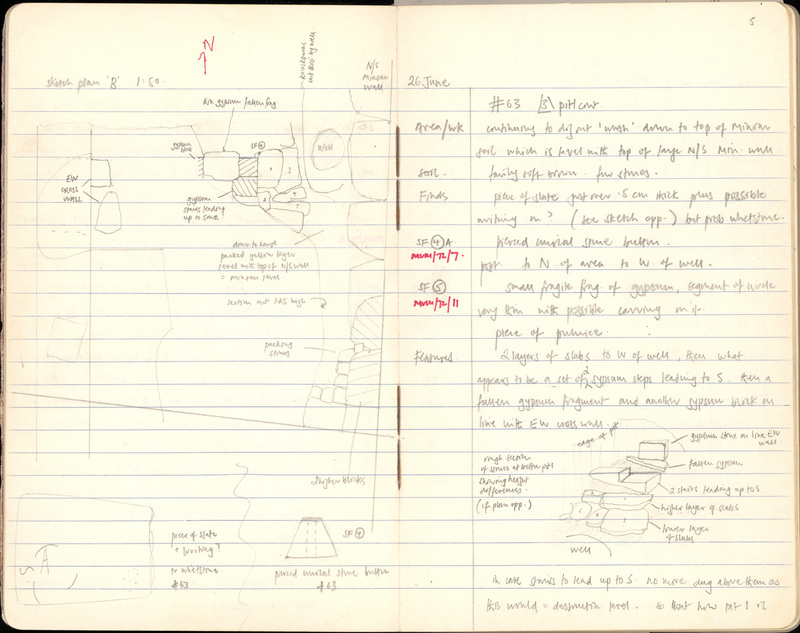 sketch plan 'B' 1:50.
N
N/S
minoan
wall
Rim gypsum fallen frag.
SF ④
gypsum
block
well
EW
cross
wall
gypsum
stairs leading
up to south
down to hard
packed yellow layer
level with top of N/S wall
= minoan level.
section cut this high
packing
stones
higher blocks
piece of slate
+ writing?
or whetstone
#63
SF ④
pierced conical stone button
#63
5
26 June
#63 3 pit cont.
Area/wk continuing to dig out 'wash' down to top of minoan
soil which is level with top of large N/S Min. wall
soil. fairly soft brown. few stones.
Finds piece of slate just over .5 cm thick plus possible
writing on? (see sketch opp.) but prob whetstone.
SF ④ A pierced conical stone button.
MUM/72/7. posn. to N. of area to W. of well.
SF ⑤ small fragile frag of gypsum, segment of circle
MUM/72/11 very thin with possible carving on it.
piece of pumice.
Features 2 layers of slabs to W of well, then what
appears to be a set of 2 gypsum steps leading to S. then a
fallen gypsum fragment and another gypsum block on
line with EW cross wall.
edge of pit
gypsum stone on line EW
wall
rough section
of stones at bottom pit
showing height
differences.
(cf plan opp.)
fallen gypsum
2 stairs leading up to S
higher layer of slabs
lower layer
of slabs
well
in case stairs to lead up to S. no more dug above them as
this would = destruction level. so that now pit 1 +3